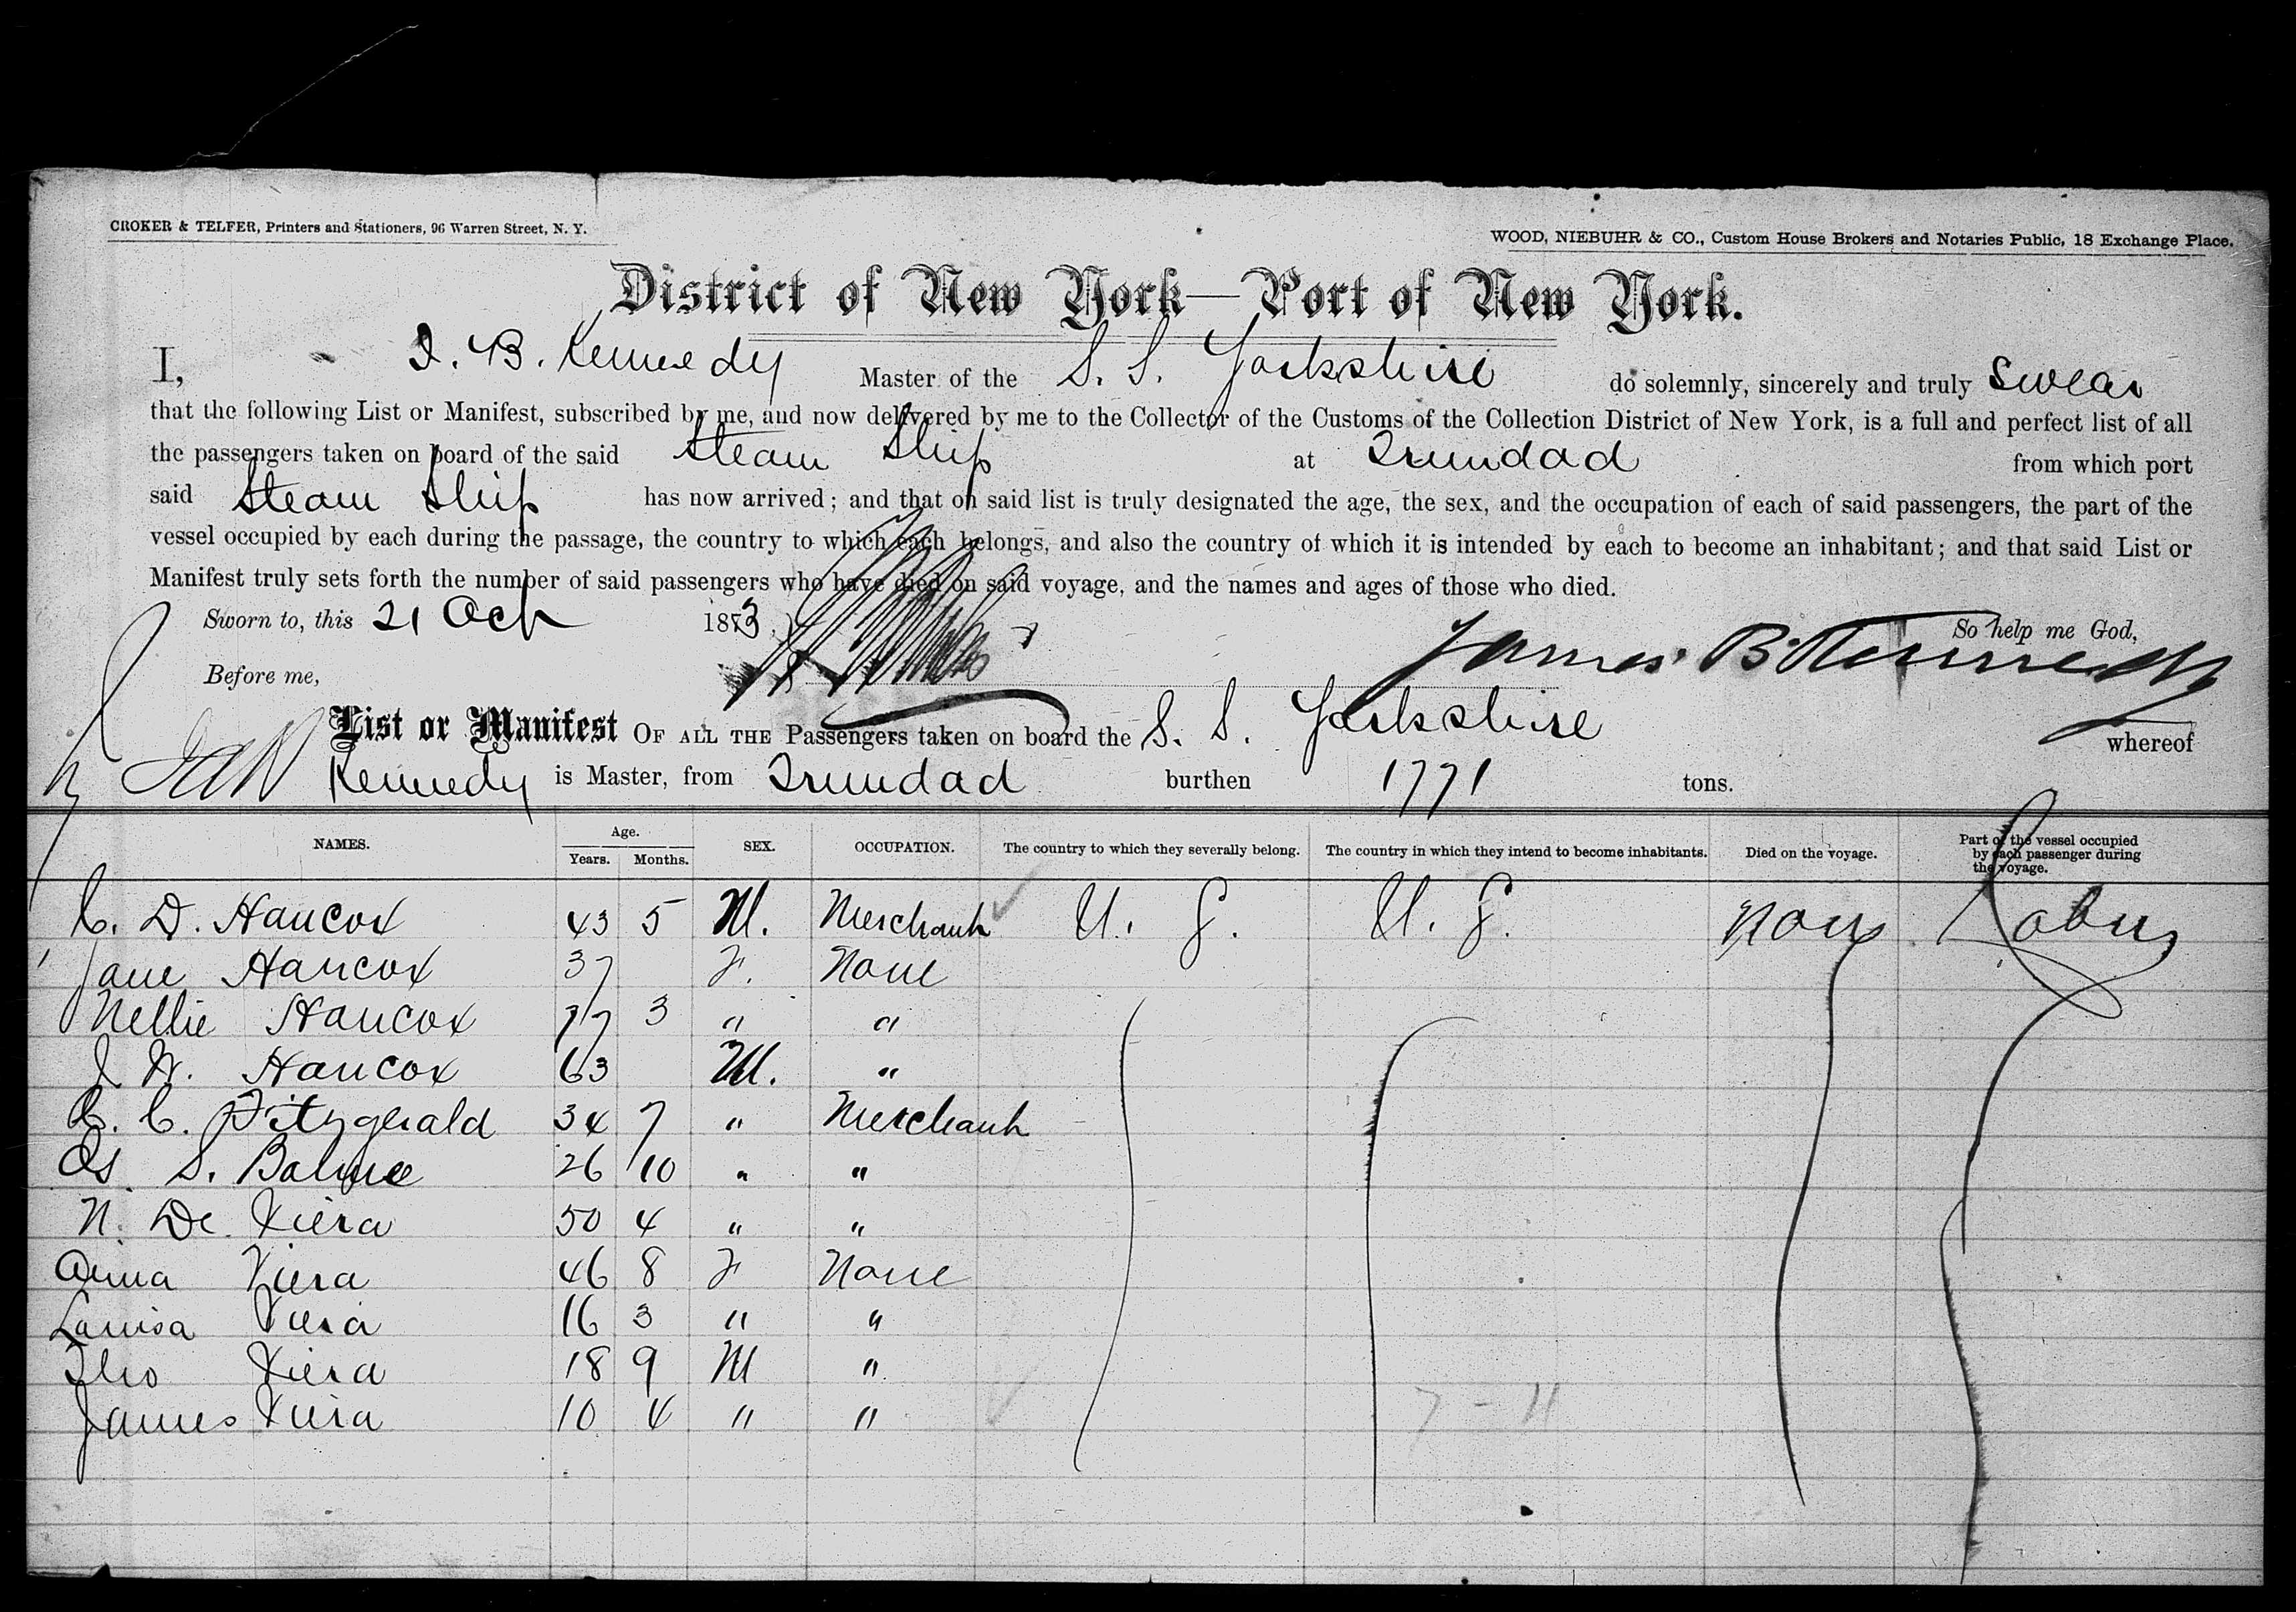 CROKER & TELFER, Printers and Stationers, 96 Warren Street, N. Y.
WOOD, NIEBUHR & CO., Custom House Brokers and Notaries Public, 18 Exchange Place.
District of New York—Port of New York.
I, J. B. Kennedy Master of the S. S. Yorkshire do solemnly, sincerely and truly Swear
that the following List or Manifest, subscribed by me, and now delivered by me to the Collector of the Customs of the Collection District of New York, is a full and perfect list of all
the passengers taken on board of the said Steam Ship at Trinidad from which port
said Steam Ship has now arrived; and that on said list is truly designated the age, the sex, and the occupation of each of said passengers, the part of the
vessel occupied by each during the passage, the country to which each belongs, and also the country of which it is intended by each to become an inhabitant; and that said List or
Manifest truly sets forth the number of said passengers who have died on said voyage, and the names and ages of those who died.
Sworn to, this 21 Oct 1873 So help me God,
Before me, James B Kennedy
List or Manifest OF ALL THE Passengers taken on board the S. S. Yorkshire whereof
Kennedy is Master, from Trinidad burthen 1771 tons.
NAMES. Age. Years. Months. SEX. OCCUPATION. The country to which they severally belong. The country in which they intend to become inhabitants. Died on the voyage. Part of the vessel occupied by each passenger during the voyage.
C. D. Hancox 43 5 M. Merchant U. S. U. S. None Cabin
Jane Hancox 37 F. None
Nellie Hancox 3 " "
J W. Hancox 63 M. "
C. Fitzgerald 34 7 " Merchant
S. 26 10 " "
N. De Viera 50 4 " "
Anna Viera 46 8 F None
Louisa Viera 16 3 " "
Theo Viera 18 9 M "
James Viera 10 4 " "
7 - 11